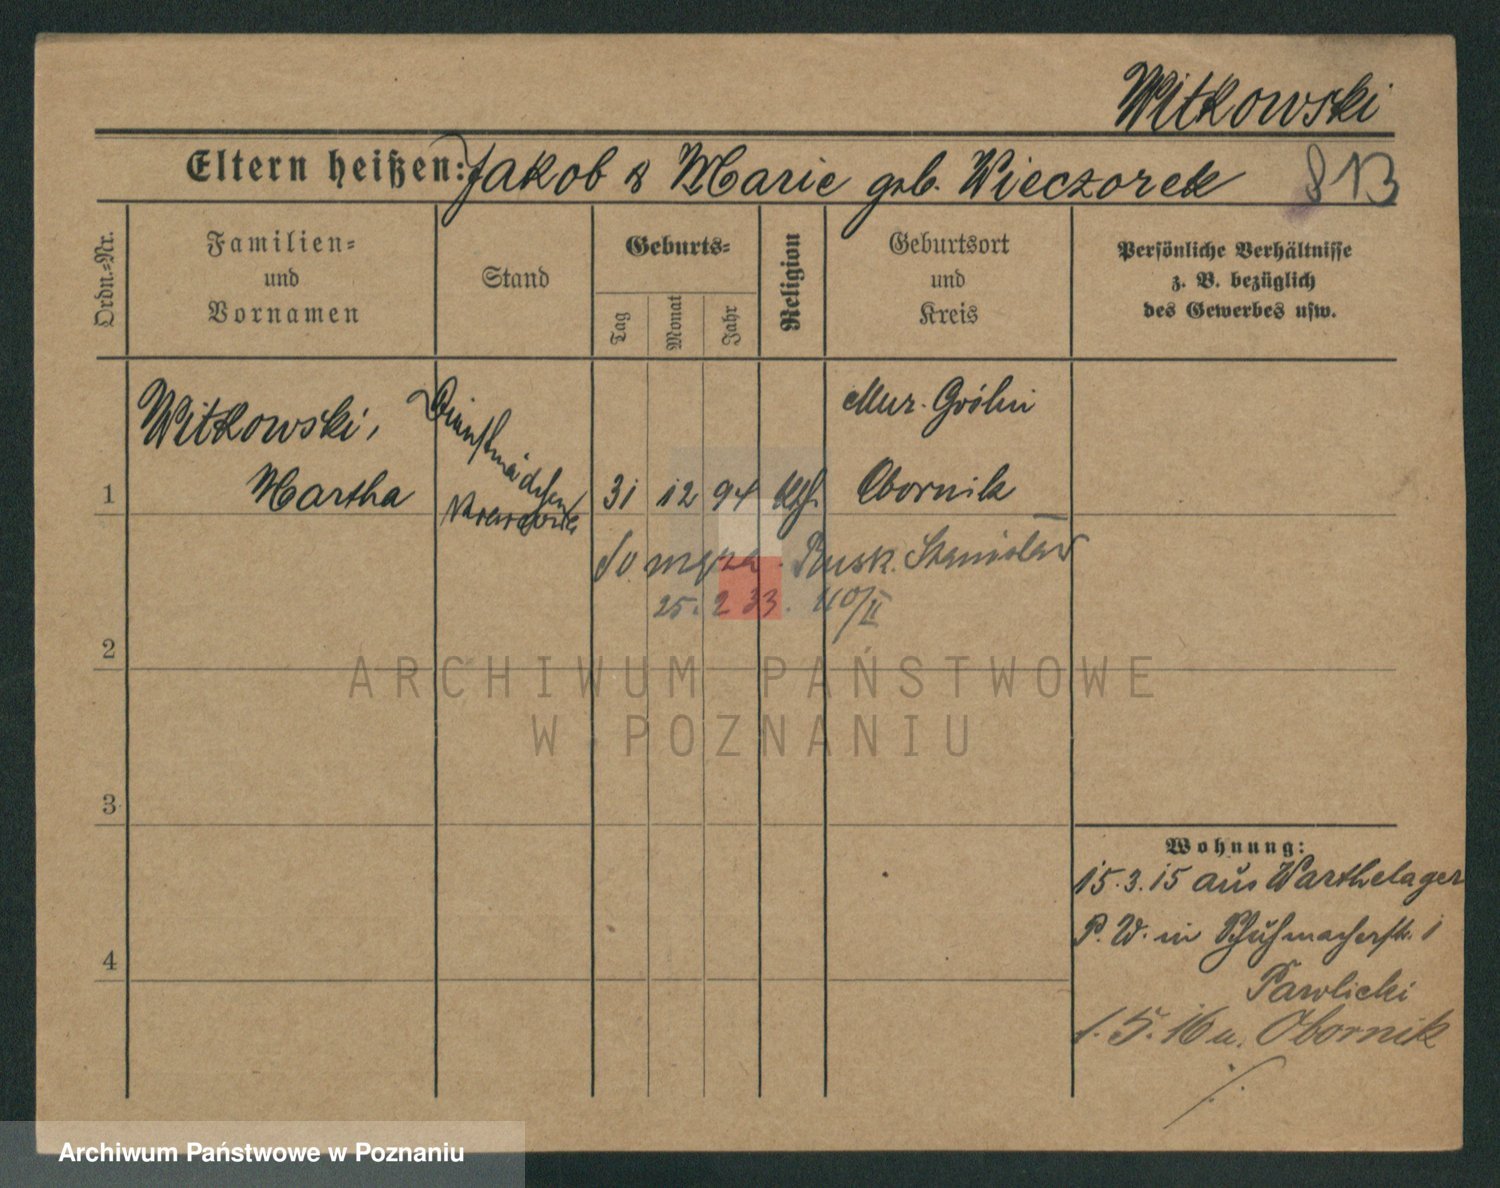 Witkowski
Eltern heißen: Jakob & Marie geb. Wieczorek 813
Ordn.=Nr.
Familien=
und
Vornamen
Stand
Geburts=
Tag
Monat
Jahr
Religion
Geburtsort
und
Kreis
Persönliche Verhältnisse
z. B. bezüglich
des Gewerbes usw.
Witkowski,
Martha
Dienstmädchen
1
31 12 94 kth.
Mur. Goślin
Obornik
do męża. Rusk. Stanisław
25. 2 33.
2
3
4
Wohnung:
15.3.15 aus Warthelager
P. W. in Schuhmacherstr. 1
Pawlicki
1.5.16 n. Obornik
ARCHIWUM PAŃSTWOWE
W POZNANIU
Archiwum Państwowe w Poznaniu